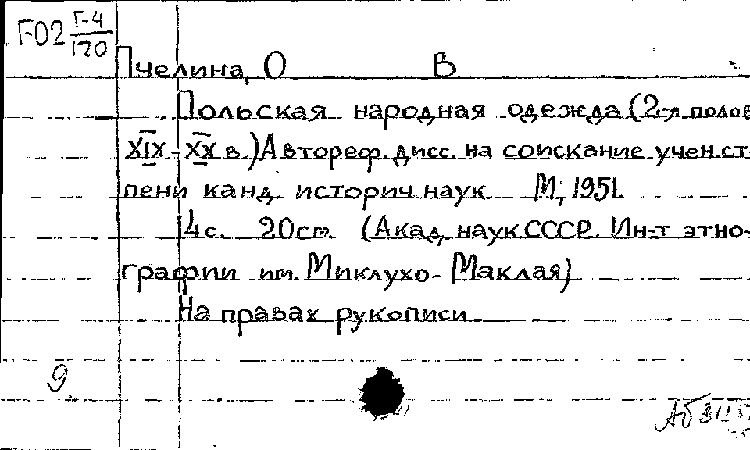 Г-02 Г-4/120
Пчелина, О В
Польская народная одежда (2-я полов
XIX - XX в.) Автореф. дисс. на соискание учен. ст-
пени канд. историч. наук М., 1951.
14 с. 20 см. (Акад. наук СССР. Ин-т этно-
графии им. Миклухо-Маклая)
На правах рукописи
9